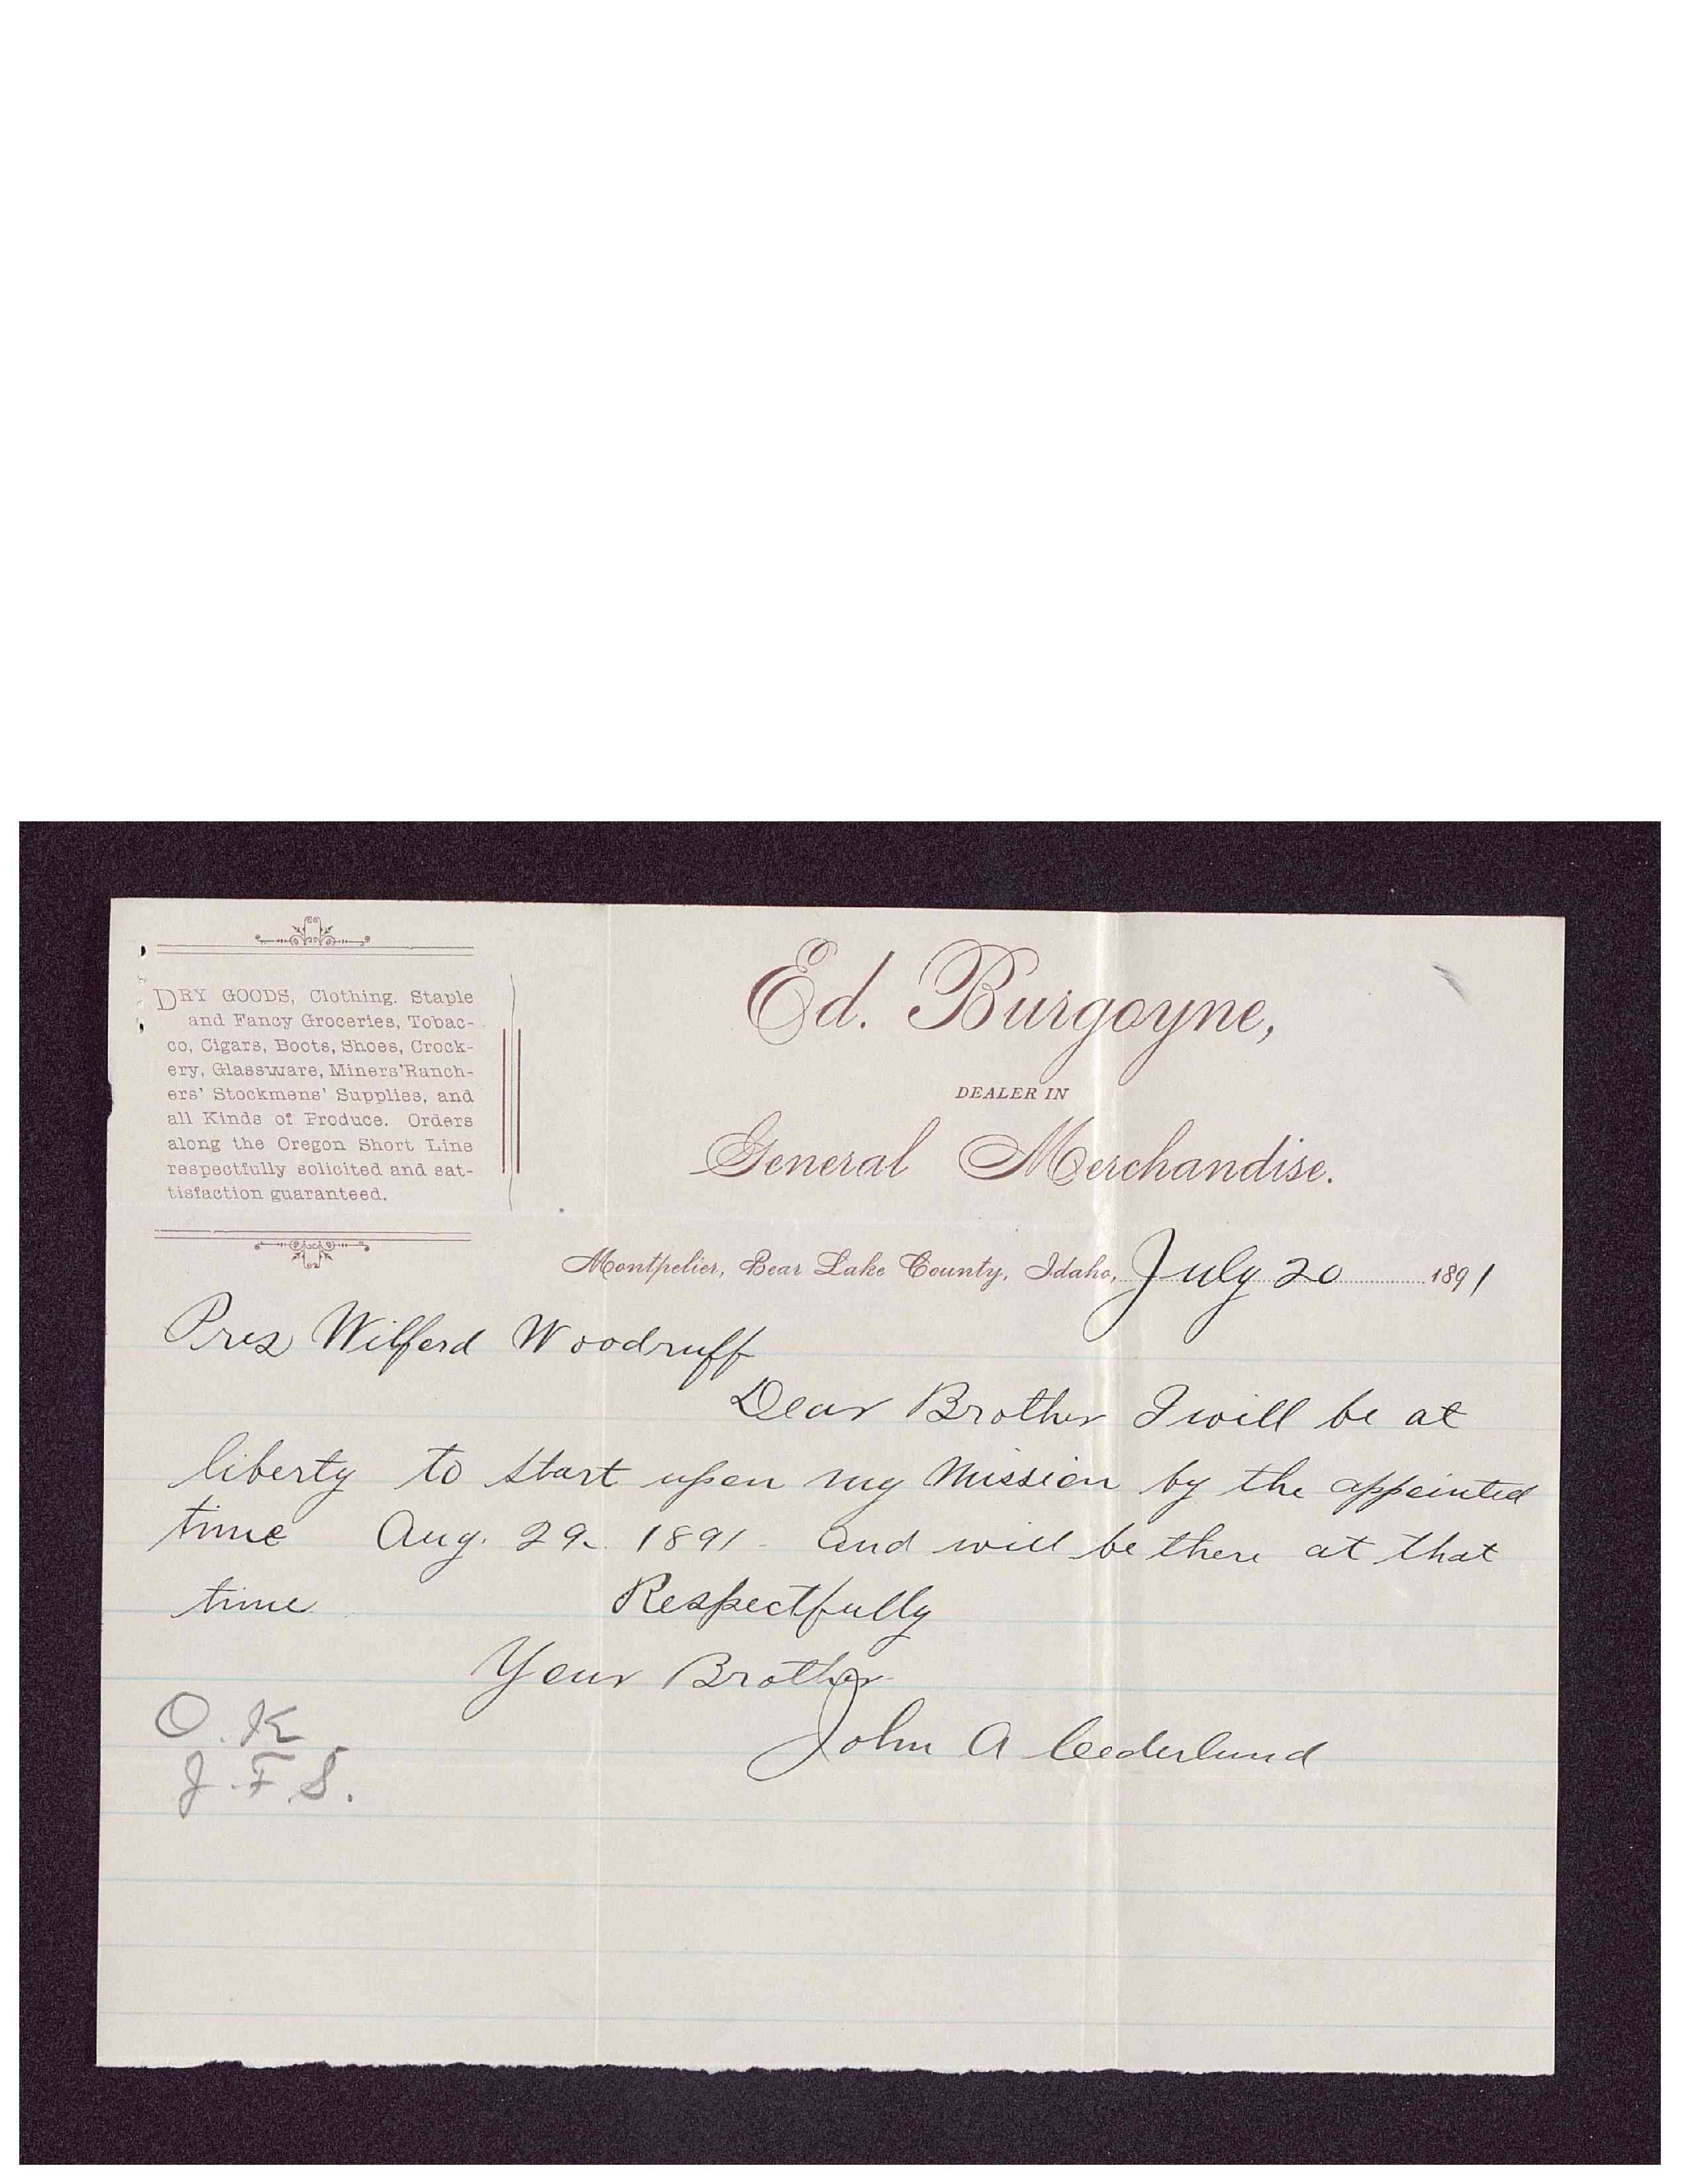 DRY GOODS, Clothing. Staple
and Fancy Groceries, Tobac-
co, Cigars, Boots, Shoes, Crock-
ery, Glassware, Miners' Ranch-
ers' Stockmens' Supplies, and
all Kinds of Produce. Orders
along the Oregon Short Line
respectfully solicited and sat-
tisfaction guaranteed.
Ed. Burgoyne,
DEALER IN
General Merchandise.
Montpelier, Bear Lake County, Idaho, July 20 1891
Pres Wilferd Woodruff
Dear Brother I will be at
liberty to start upon my Mission by the appointed
time Aug. 29. 1891 - and will be there at that
time Respectfully
Your Brother
John A Cederlund
O.K
J.F.S.